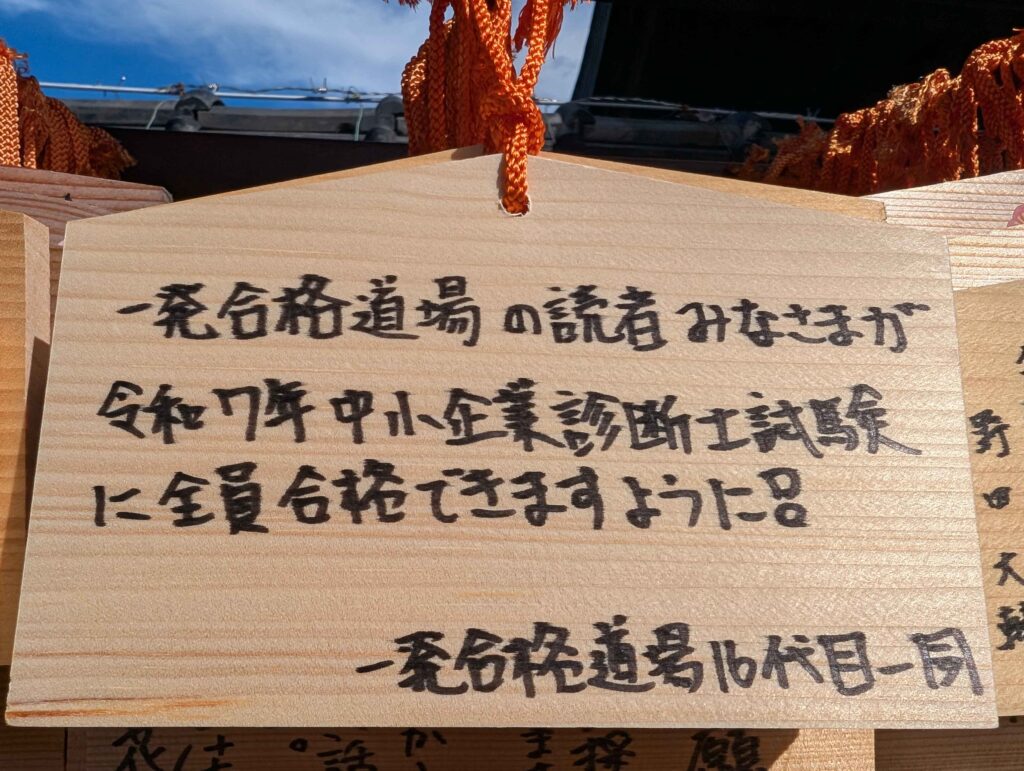 一発合格道場の読者みなさまが
令和7年中小企業診断士試験
に全員合格できますように
一発合格道場16代目一同
野田大
願